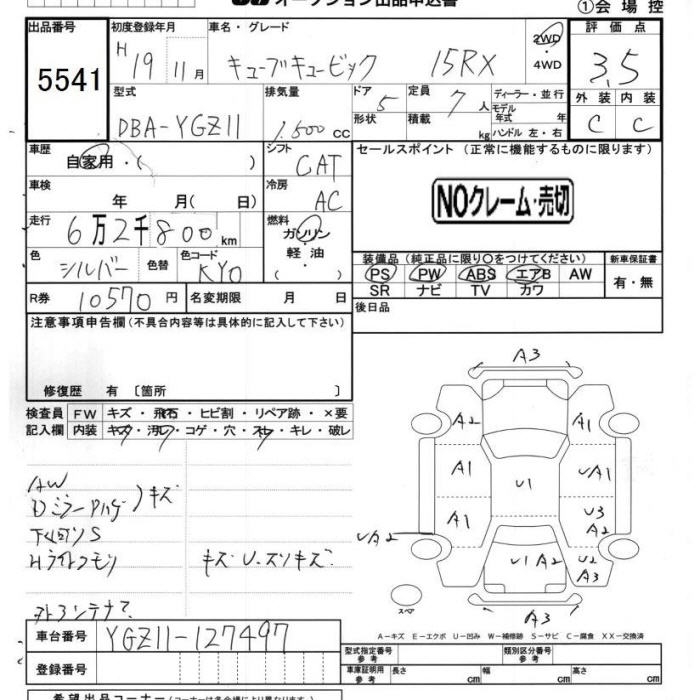 オークション出品申込書
①会場控
出品番号 初度登録年月 車名・グレード 評価点
5541 H19 11月 キューブキュービック 15RX 2WD ・ 4WD 3.5
型式 排気量 ドア 定員 ディーラー・並行 外装 内装
DBA-YGZ11 1.500cc 5 7人 モデル年式 年 C C
形状 積載 kg ハンドル 左・右
車歴 自家用・( ) シフト CAT セールスポイント (正常に機能するものに限ります)
車検 年 月(日) 冷房 AC NOクレーム・売切
走行 6万2千800km 燃料 ガソリン・軽油・( )
色 シルバー 色替 色コード KY0 装備品 (純正品に限り○をつけてください) 新車保証書
PS PW ABS エアB AW 有・無
SR ナビ TV カワ
R券 10570円 名変期限 月 日 後日品
注意事項申告欄 (不具合内容等は具体的に記入して下さい)
修復歴 有 〔箇所 〕
検査員 FW キズ・飛石・ヒビ割・リペア跡・×要
記入欄 内装 キズ・汚レ・コゲ・穴・スレ・キレ・破レ
A3
A2 A1
A1 U1 UA1
A1 U3 A2
UA2 U1 A2 U2 A3
A3
スペア
AW
キズ
下回りS
Hライトクモリ キズU.スリキズ
外アンテナ
A-キズ E-エクボ U-凹み W-補修跡 S-サビ C-腐食 XX-交換済
車台番号 YGZ11-127497
型式指定番号 参考 類別区分番号 参考
登録番号 車庫証明用 参考 長さ cm 幅 cm 高さ cm
希望出品コーナー (コーナーは会場により異なります)